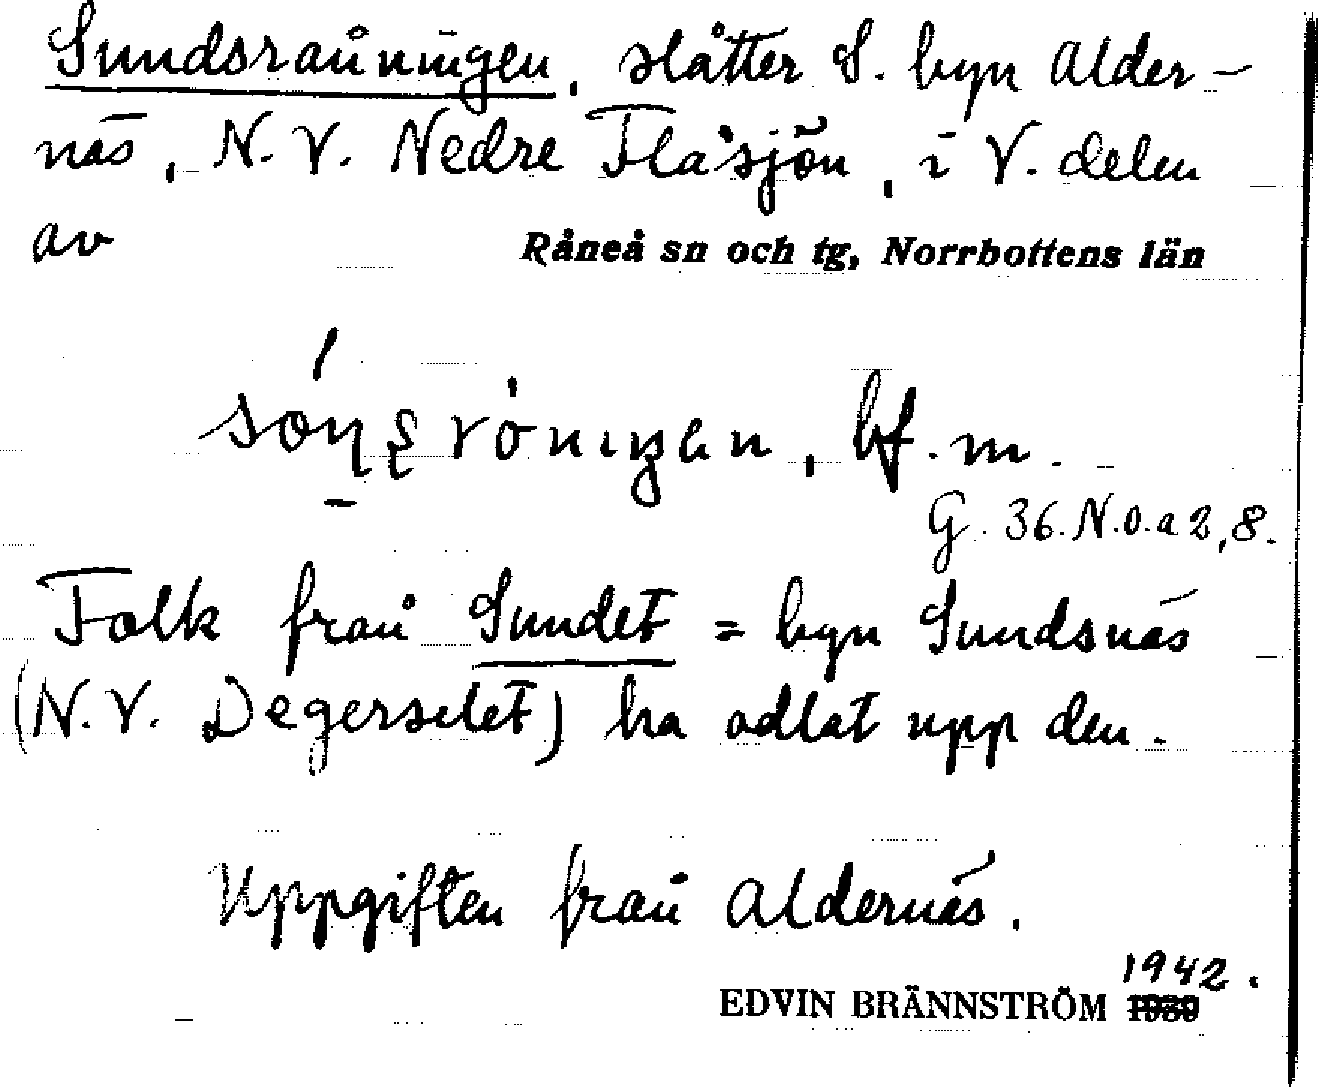 Sundsråningen, slåtter S. byn Alder-
näs, N.V. Nedre Flåsjön, i V. delen
av Råneå sn och tg, Norrbottens län
bf. m.
G. 36. N.o.a 2,8.
Folk från Sundet = byn Sundsnäs
(N.V. Degerselet) ha odlat upp den.
Uppgiften från Aldernäs.
1942.
EDVIN BRÄNNSTRÖM 1939